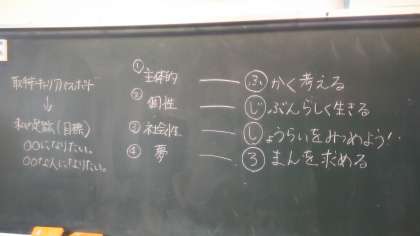 ↓
私の足跡(目標)
〇〇になりたい。
〇〇な人になりたい。
① 主体的 ── ふかく考える
② 個性 ── じぶんらしく生きる
③ 社会性 ── しょうらいをみつめよう!
④ 夢 ── ろまんを求める